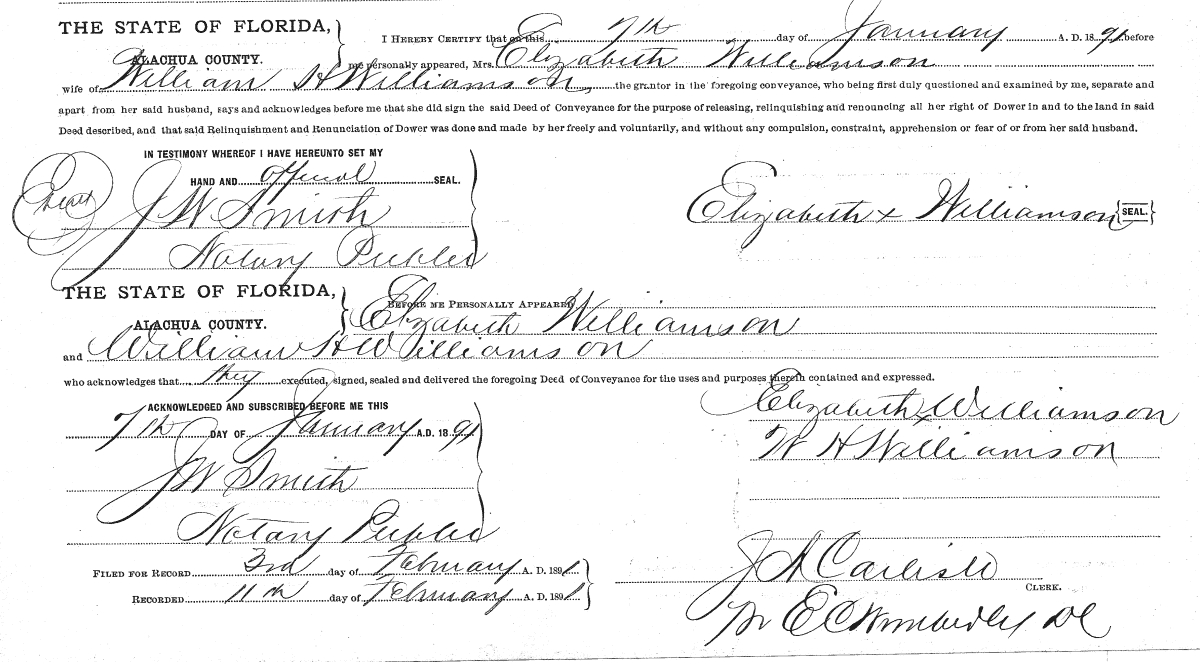 THE STATE OF FLORIDA,
ALACHUA COUNTY.
I HEREBY CERTIFY that on this 7th day of January A. D. 1891, before
me personally appeared, Mrs. Elizabeth Williamson
wife of William H Williamson, the grantor in the foregoing conveyance, who being first duly questioned and examined by me, separate and
apart from her said husband, says and acknowledges before me that she did sign the said Deed of Conveyance for the purpose of releasing, relinquishing and renouncing all her right of Dower in and to the land in said
Deed described, and that said Relinquishment and Renunciation of Dower was done and made by her freely and voluntarily, and without any compulsion, constraint, apprehension or fear of or from her said husband.
IN TESTIMONY WHEREOF I HAVE HEREUNTO SET MY
HAND AND official SEAL.
J W Smith
Notary Public
Elizabeth x Williamson {SEAL.}
THE STATE OF FLORIDA,
ALACHUA COUNTY.
BEFORE ME PERSONALLY APPEARED
Elizabeth Williamson
and William H Williamson
who acknowledges that they executed, signed, sealed and delivered the foregoing Deed of Conveyance for the uses and purposes therein contained and expressed.
ACKNOWLEDGED AND SUBSCRIBED BEFORE ME THIS
7th DAY OF January A.D. 1891
J W Smith
Notary Public
Elizabeth x Williamson
W H Williamson
FILED FOR RECORD 3rd day of February A. D. 1891
RECORDED 11th day of February A. D. 1891
J A Carlisle
CLERK.
E C Wimberley DC